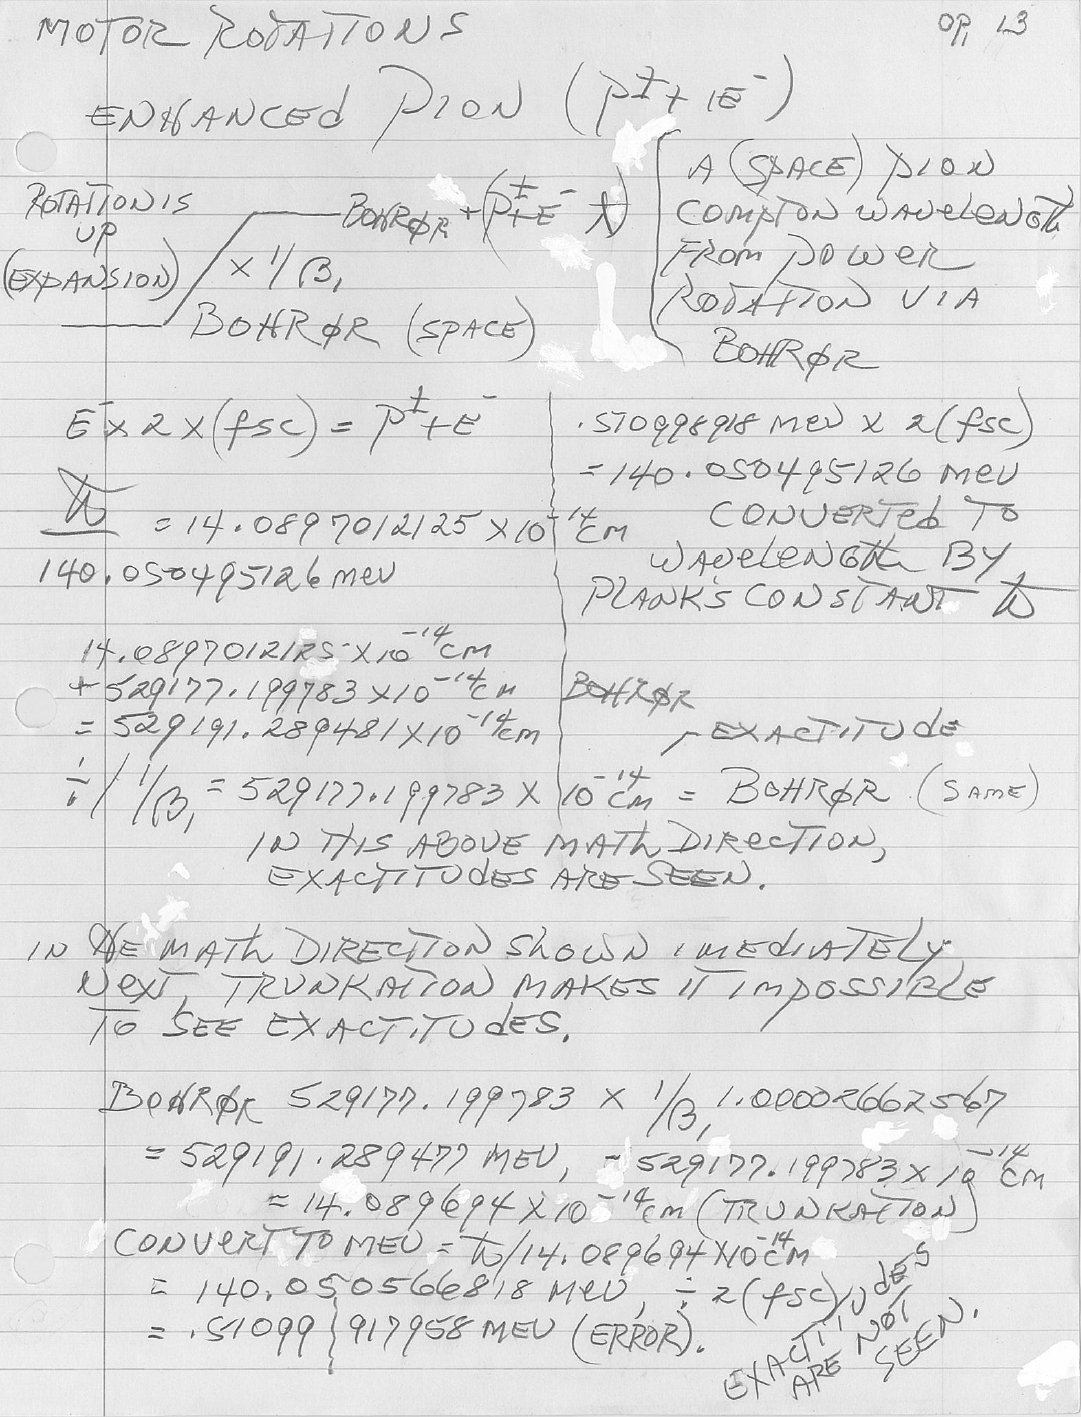 MOTOR ROTATIONS
OP, 13
ENHANCED PION (P± + 1E⁻)
ROTATION IS
UP
(EXPANSION)
BOHRØR + (P± + E⁻ ƛ)
× 1/β₁
BOHRØR (SPACE)
A (SPACE) PION
COMPTON WAVELENGTH
FROM POWER
ROTATION VIA
BOHRØR
E⁻ × 2 × (fsc) = P± + E⁻
ħ
= 14.0897012125 × 10⁻¹⁴ CM
140.050495126 MeV
.510998918 MeV × 2(fsc)
= 140.050495126 MeV
CONVERTED TO
WAVELENGTH BY
PLANK'S CONSTANT ħ
14.0897012125 × 10⁻¹⁴ CM
+ 529177.199783 × 10⁻¹⁴ CM BOHRØR
= 529191.289481 × 10⁻¹⁴ CM
EXACTITUDE
÷ / 1/β₁ = 529177.199783 × 10⁻¹⁴ CM = BOHRØR (SAME)
IN THIS ABOVE MATH DIRECTION,
EXACTITUDES ARE SEEN.
IN THE MATH DIRECTION SHOWN IMEDIATELY
NEXT, TRUNKATION MAKES IT IMPOSSIBLE
TO SEE EXACTITUDES.
BOHRØR 529177.199783 × 1/β₁ 1.000026662567
= 529191.289477 MEV, - 529177.199783 × 10⁻¹⁴ CM
= 14.089694 × 10⁻¹⁴ CM (TRUNKATION)
CONVERT TO MEV = ħ/14.089694 × 10⁻¹⁴ CM
= 140.050566818 MeV, ÷ 2(fsc)
= .51099 917958 MEV (ERROR).
EXACTITUDES
ARE NOT
SEEN.